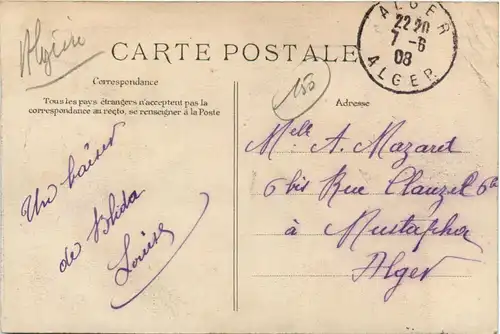 Algérie
CARTE POSTALE
ALGER
22 20
7 - 6
08
ALGER
Correspondance
Tous les pays étrangers n'acceptent pas la
correspondance au recto, se renseigner à la Poste
150
Adresse
Un baiser
de Blida
Louise
Melle A. Mazaret
6 bis Rue Clauzel 6 bis
à Mustapha
Alger